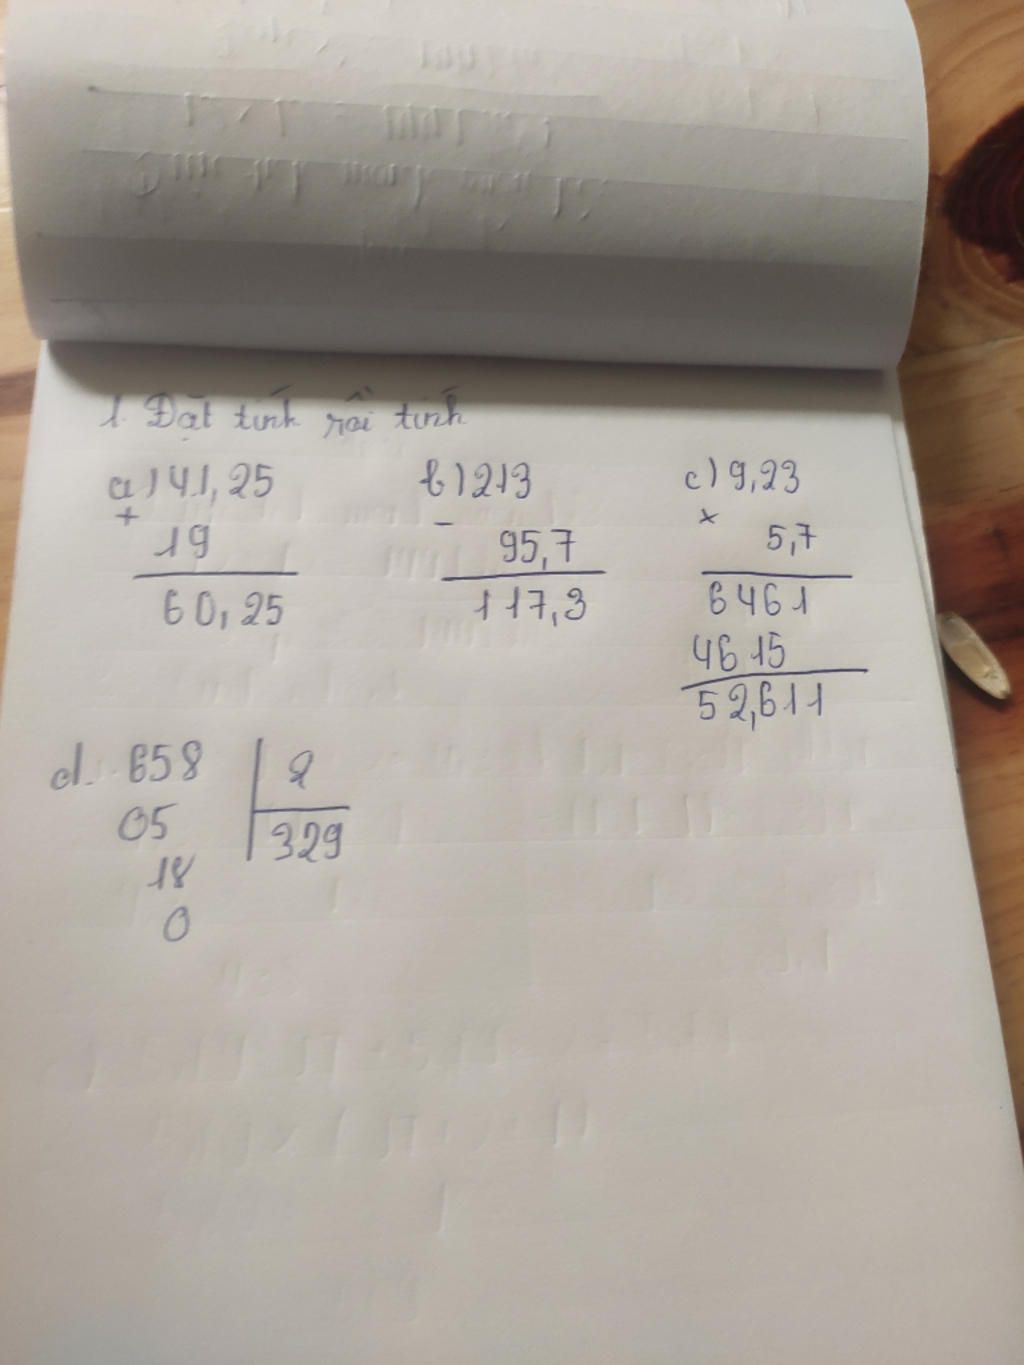 1. Đặt tính rồi tính
a) 41,25 b) 213 c) 9,23
+ - ×
19 95,7 5,7
60,25 117,3 6461
4615
52,611
d. 658 2
05 329
18
0